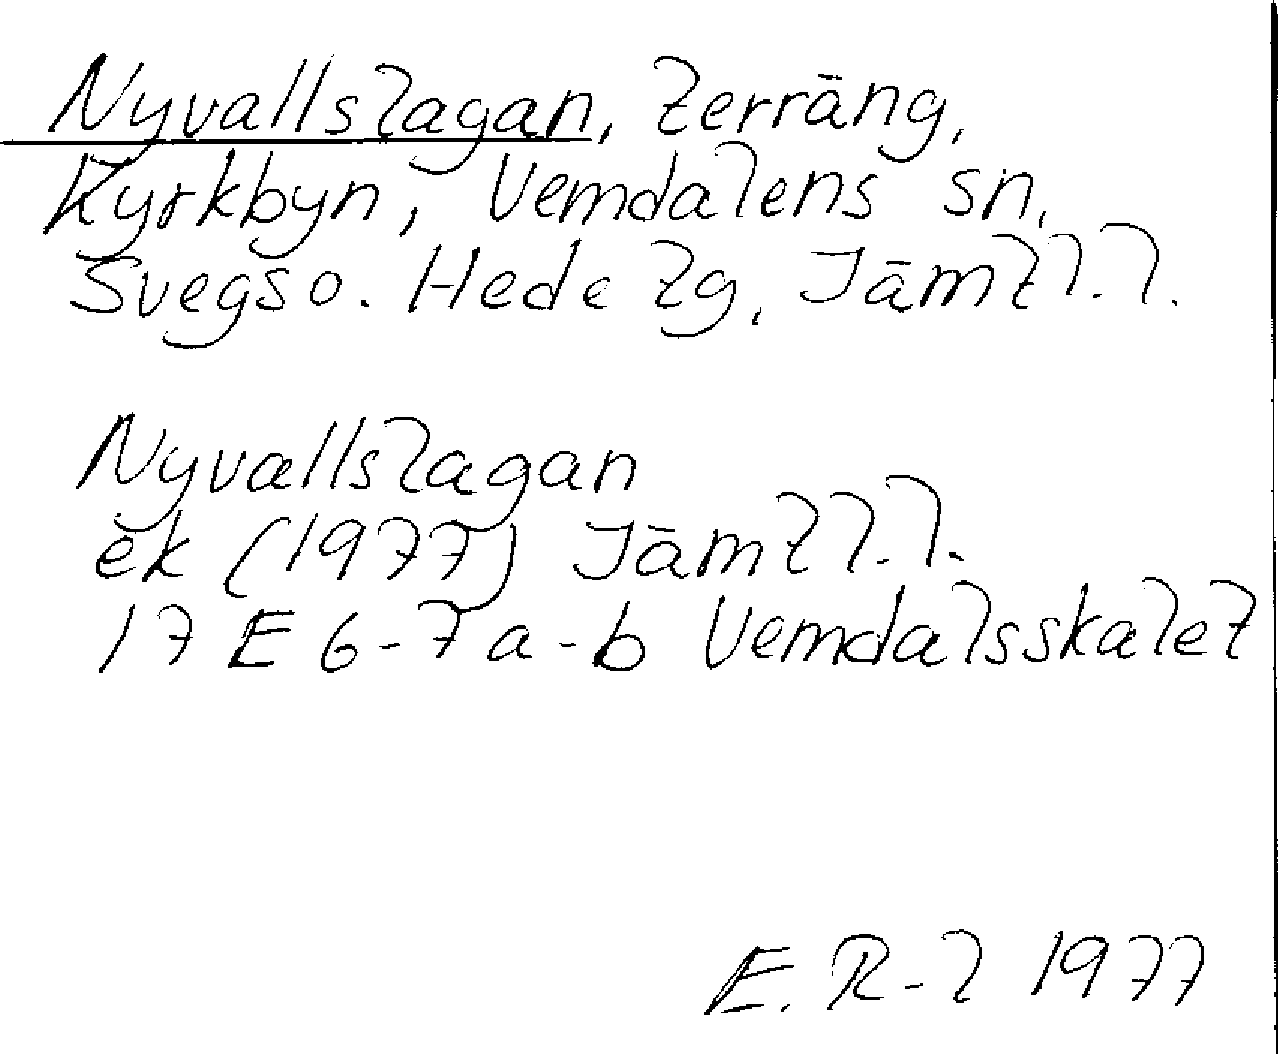 Nyvallslagan, terräng,
Kyrkbyn, Vemdalens sn,
Svegs o. Hede tg, Jämtl.l.
Nyvallslagan
ek (1977) Jämtl.l.
17 E 6-7 a-b Vemdalsskalet
E. R-l 1977